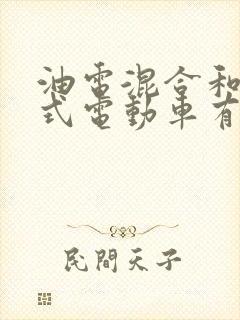 油電混合和
式電動車有
民間天子